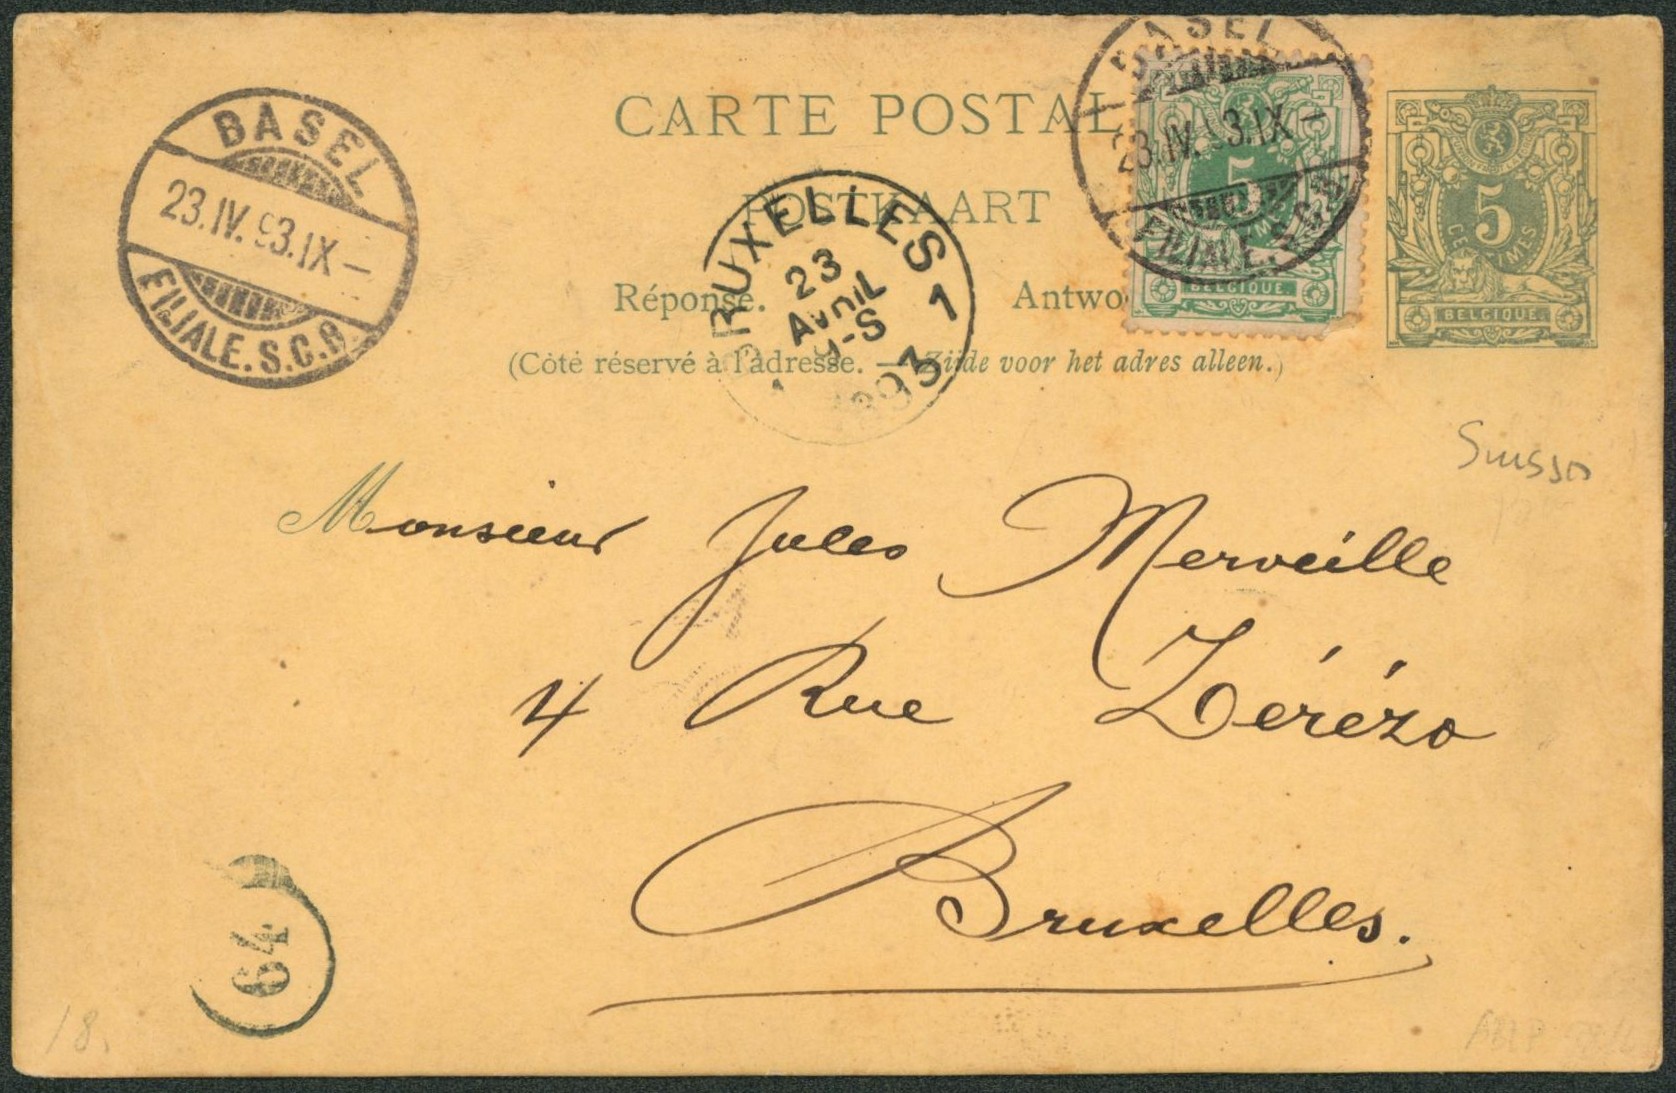 CARTE POSTAL
POSTKAART
Réponse. Antwo
(Côté réservé à l'adresse. — Zijde voor het adres alleen.)
BASEL
23.IV.93.IX –
FILIALE.S.C.B.
BRUXELLES 1
23
AVRIL
9-S
1893
BASEL
23.IV.93.IX –
FILIALE.S.C.B.
5
BELGIQUE
5
CENTIMES
BELGIQUE
Suisse
Monsieur Jules Merveille
4 Rue Zérézo
Bruxelles.
64
18.